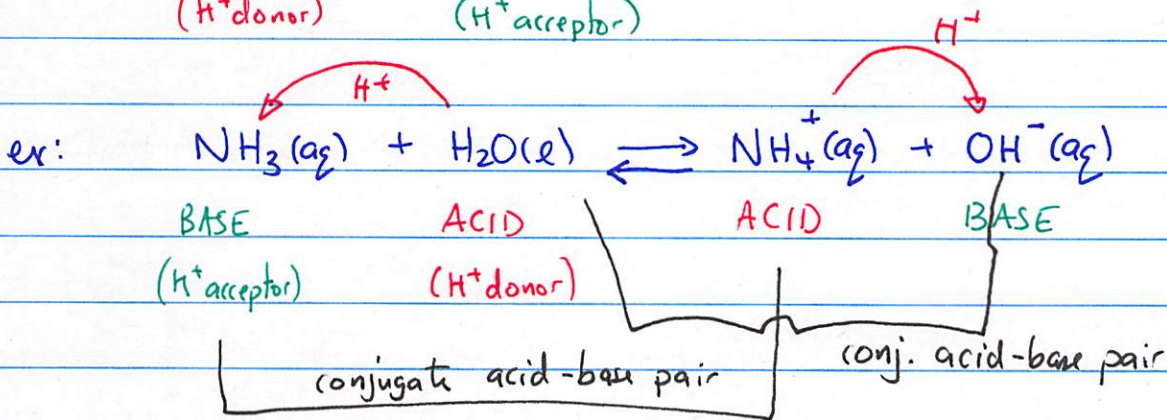 (H⁺donor) (H⁺acceptor)
H⁺ H⁺
ex: NH₃(aq) + H₂O(l) ⇌ NH₄⁺(aq) + OH⁻(aq)
BASE ACID ACID BASE
(H⁺acceptor) (H⁺donor)
conjugate acid-base pair conj. acid-base pair